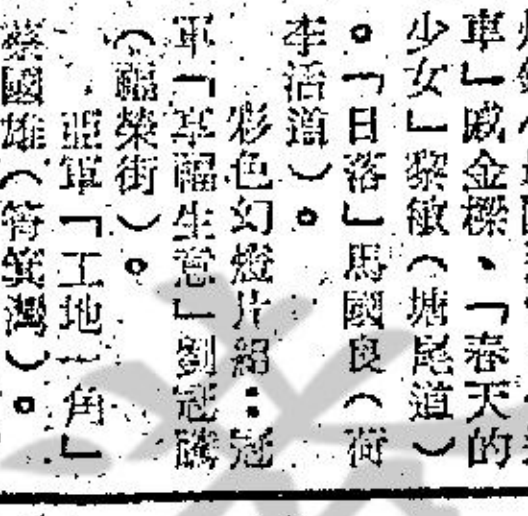 車」戚金樑、「春天的
少女」黎敏（塘尾道）
。「日落」馬國良（荷
李活道）。
彩色幻燈片組：冠
軍「享福生意」劉冠騰
（福榮街）。
亞軍「工地一角」
蔡國雄（筲箕灣）。